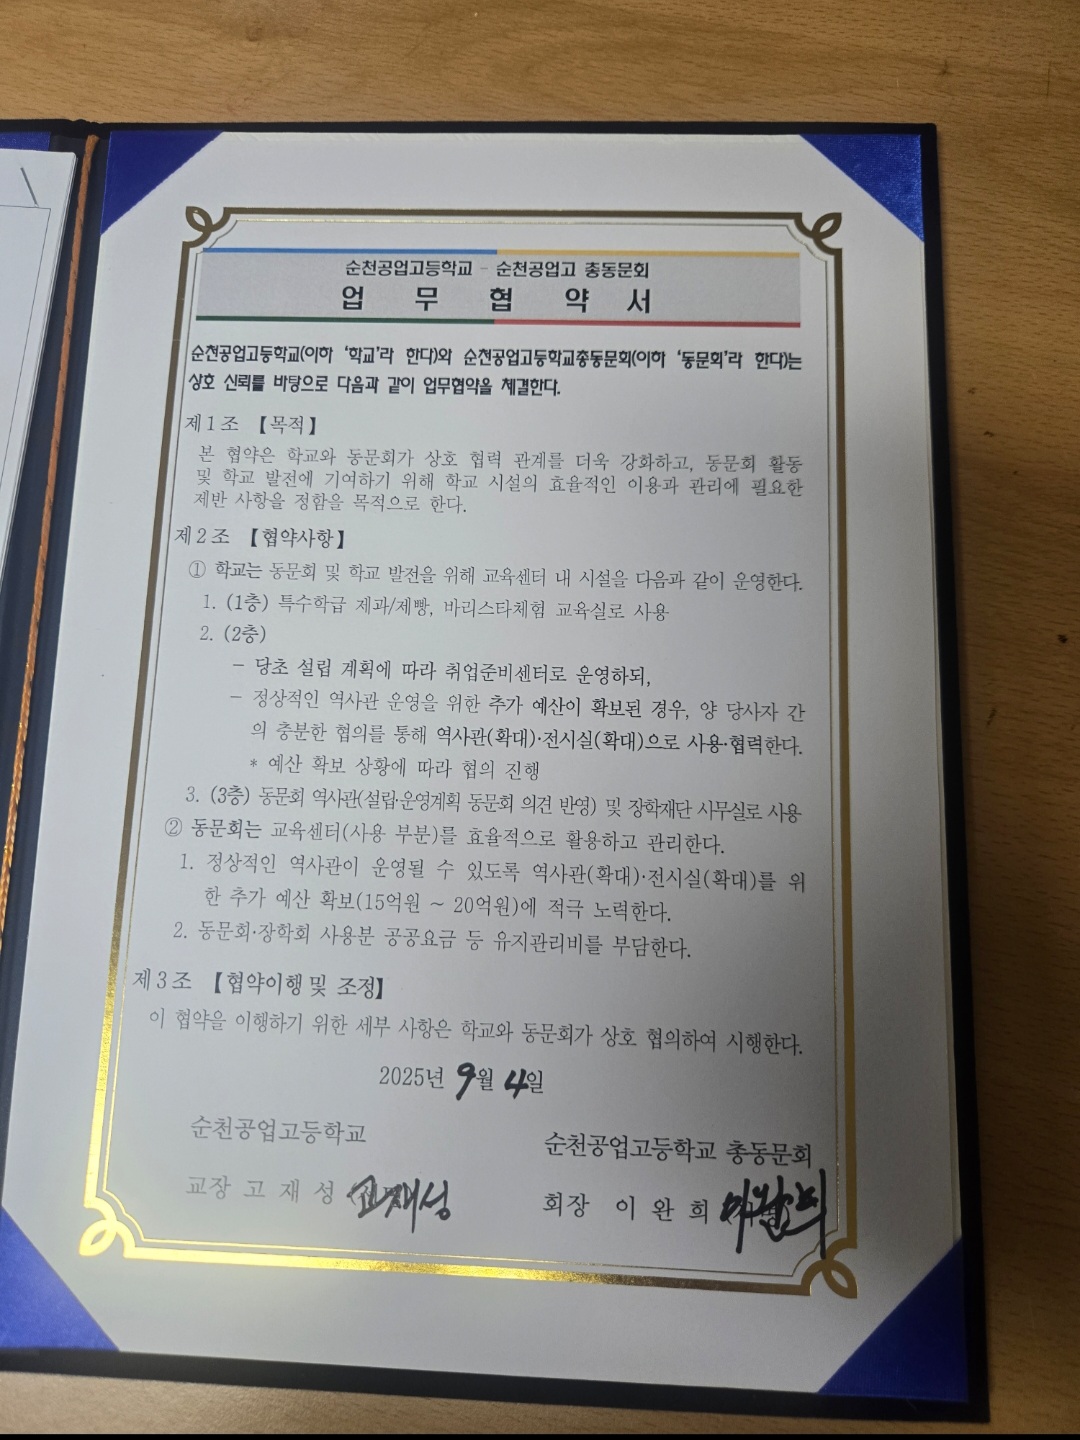 순천공업고등학교 - 순천공업고 총동문회
업 무 협 약 서
순천공업고등학교(이하 '학교'라 한다)와 순천공업고등학교총동문회(이하 '동문회'라 한다)는
상호 신뢰를 바탕으로 다음과 같이 업무협약을 체결한다.
제1조 【목적】
본 협약은 학교와 동문회가 상호 협력 관계를 더욱 강화하고, 동문회 활동
및 학교 발전에 기여하기 위해 학교 시설의 효율적인 이용과 관리에 필요한
제반 사항을 정함을 목적으로 한다.
제2조 【협약사항】
① 학교는 동문회 및 학교 발전을 위해 교육센터 내 시설을 다음과 같이 운영한다.
1. (1층) 특수학급 제과/제빵, 바리스타체험 교육실로 사용
2. (2층)
- 당초 설립 계획에 따라 취업준비센터로 운영하되,
- 정상적인 역사관 운영을 위한 추가 예산이 확보된 경우, 양 당사자 간
의 충분한 협의를 통해 역사관(확대)·전시실(확대)으로 사용·협력한다.
* 예산 확보 상황에 따라 협의 진행
3. (3층) 동문회 역사관(설립·운영계획 동문회 의견 반영) 및 장학재단 사무실로 사용
② 동문회는 교육센터(사용 부분)를 효율적으로 활용하고 관리한다.
1. 정상적인 역사관이 운영될 수 있도록 역사관(확대)·전시실(확대)를 위
한 추가 예산 확보(15억원 ~ 20억원)에 적극 노력한다.
2. 동문회·장학회 사용분 공공요금 등 유지관리비를 부담한다.
제3조 【협약이행 및 조정】
이 협약을 이행하기 위한 세부 사항은 학교와 동문회가 상호 협의하여 시행한다.
2025년 9월 4일
순천공업고등학교
순천공업고등학교 총동문회
교장 고 재 성 고재성
회장 이 완 희 이완희